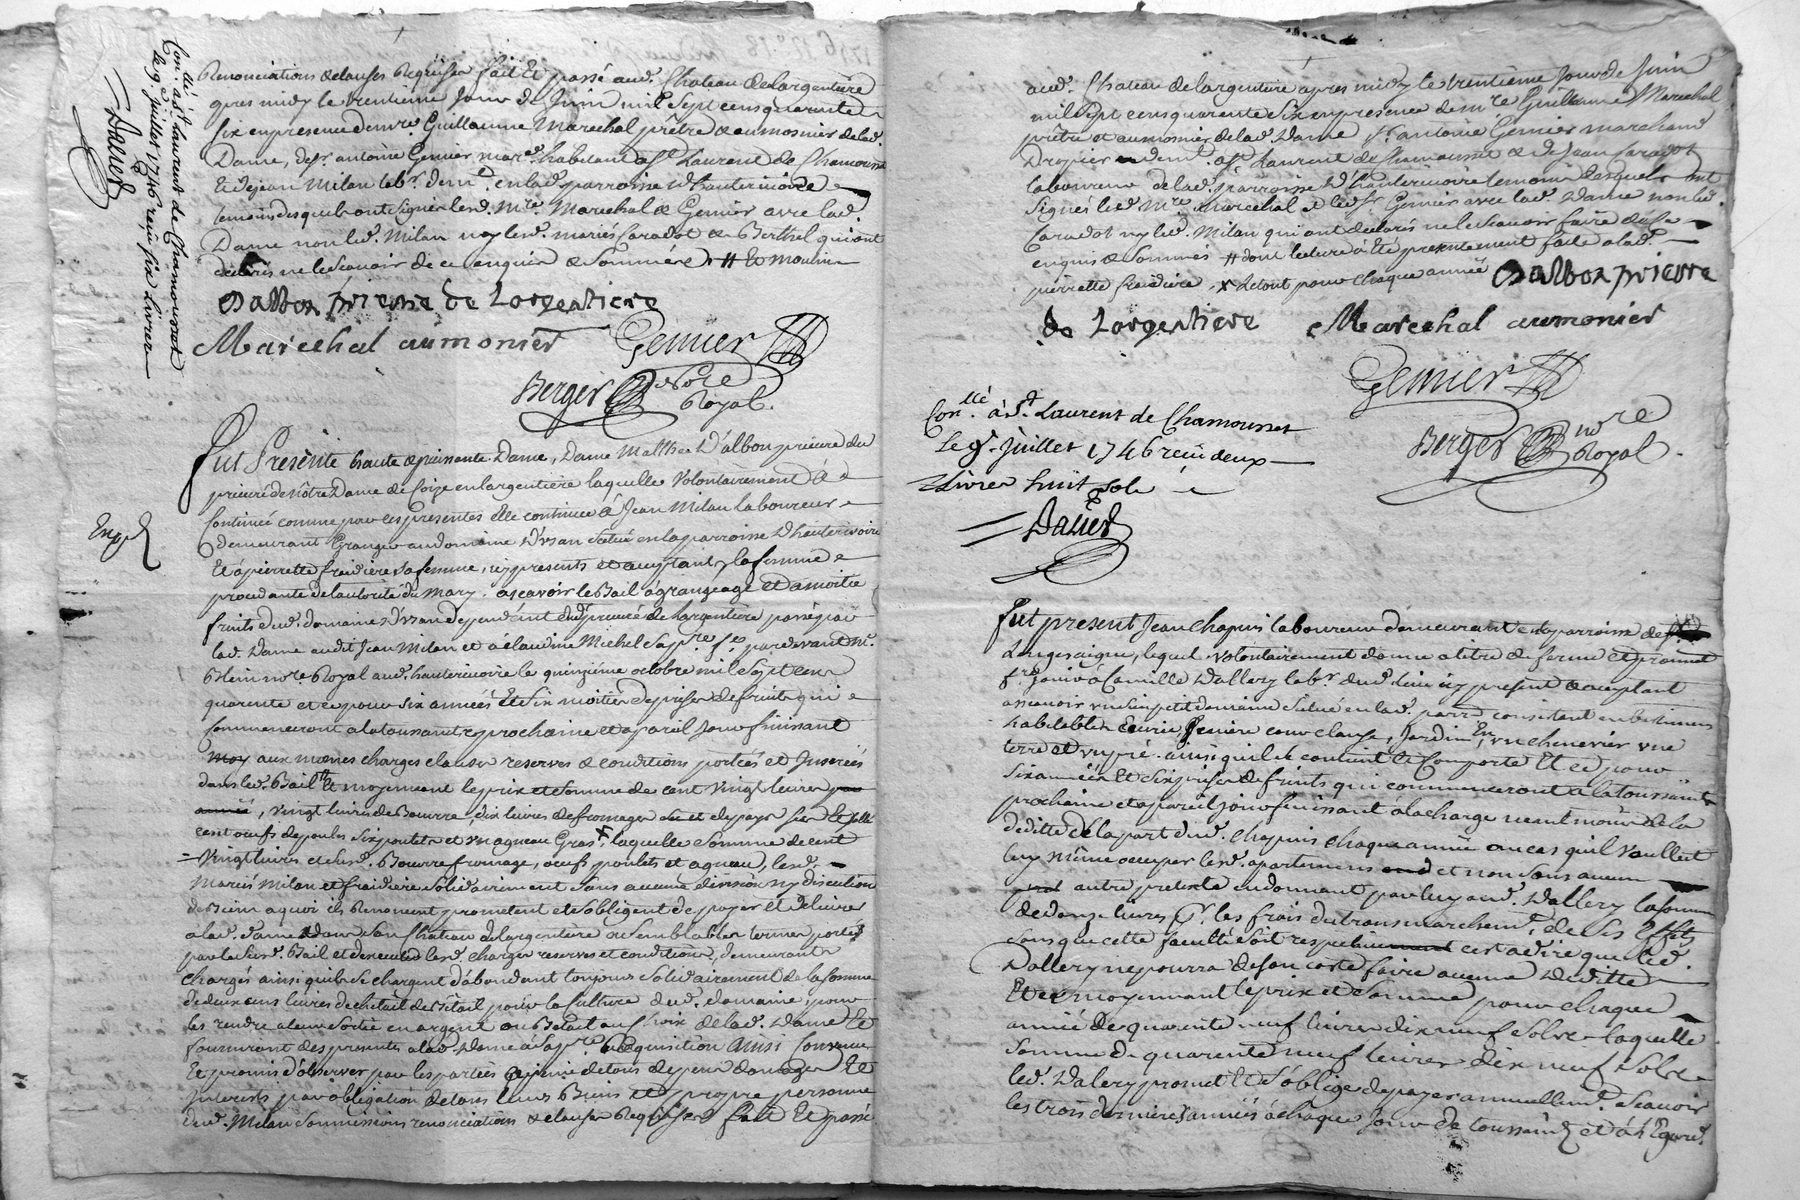 Con.llé à St Laurent de Chamousset
le 9e Juillet 1746 reçu six Livres
Dalier
Renonciations & clauses Requises fait Et passé aud. Chateau de Largentière
apres midy le trentieme Jour de Juin mil sept cens quarente
six en presence de mre. Guillaume Marechal prêtre & aumosnier de lad.
Dame, de sr. antoine Gemier mard. habitant a St. Laurent de Chamousset
Et de jean Milan labr. demt. en lad. parroisse d'hauterivoire
temoins desquels ont signés led. Mre. Marechal & Gemier avec lad.
Dame non led. Milan ny lesd. mariés Caradot & Berthel qui ont
declarés ne le scavoir de ce enquis & sommés # Et moulin
Dalbon prieure de Largentiere
Marechal aumonier Gemier
Berger Nore
Royal.
Exp.
Fut Presente haute & puissante Dame, Dame Dalbon prieure du
prieuré de nôtre Dame de Coize en largentière laquelle Volontairement a
Continué comme par ces presentes elle continue à Jean Milan laboureur
demeurant Granger au domaine d'yzan situé en la parroisse d'hauterivoire
Et à pierrette fraidiere sa femme, icy presents et acceptant, la femme
procedante de l'autorité du mary. ascavoir le Bail à grangeage et a moitié
fruits dud. domaine d'yzan dependent du prieuré de Largentière passé par
lad. Dame audit Jean Milan et à Claudine Michel sa pre. fe. pardevant Me.
nore. Royal aud. hauterivoire le quinzieme octobre mil sept cens
quarente et ce pour six années Et six moitiés de prises de fruits qui
commenceront a la toussaints prochaine et a pareil jour finissant
moy aux mêmes charges clauses reserves & conditions portées et Inserées
dans led. Bail Et moyennant le prix et somme de cent vingt livres par
année, vingt livres de Beurre, dix livres de fromages du pays
cent oeufs de poules six poulets et un agneau Gras, laquelle somme de cent
vingt livres et lesd. Beurre fromage, oeufs poulets et agneau, lesd.
Mariés Milan et fraidiere solidairement sans aucune division ny discution
de Biens a quoi ils Renoncent promettent et s'obligent de payer Et delivrer
à lad. Dame dans son Chateau de largentiere aux semblables termes portés
par le susd. Bail et d'executer lesd. charges reserves et conditions, demeurants
chargés ainsi qu'ils se chargent d'abondant toujours solidairement de la somme
de deux cens livres de chetail de Betail pour la culture dud. domaine, pour
les rendre a leur sortie en argent ou Betail au choix de lad. Dame Et
fourniront des presentes a lad. Dame à sa pre. Requisition Ainsi Convenu
Et promis d'observer par les parties a peine de tous depens domages Et
Interests par obligation de tous leurs Biens et propre personne
dud. Milan soumissions renonciations & clauses Requises fait Et passé
aud. Chateau de largentiere apres midy le trentième Jour de Juin
mil sept cens quarente six en presence de mre. Guillaume Marechal
prêtre et aumosnier de lad. Dame sr. antoine Gemier marchand
Drapier demt. a St. Laurent de Chamousset & de Jean Caradot
laboureur de lad. parroisse d'hauterivoire temoins desquels ont
signés led. Mre. Marechal et led. sr. Gemier avec lad. Dame non led.
Caradot ny led. Milan qui ont declarés ne le scavoir faire de ce
enquis & sommés # dont lecture à été presentement faite a lad.
pierrette fraidiere x letout pour chaque année Dalbon prieure
de Largentiere Marechal aumonier
Gemier
Berger nore
Royal.
Con.llé à St Laurent de Chamousset
le 9e Juillet 1746 reçu deux
Livres huit sols
Dalier
Fut present Jean Chapuis laboureur demeurant en la parroisse de
Longessaigne, lequel volontairement donne a titre de ferme et promet
fre. jouir à Camille Dallery labr. dud. lieu icy present & acceptant
ascavoir un petit domaine situé en lad. parre. consistant en batimens
habitables Ecurie, feniere cour clause, Jardin, un chenevier une
terre et un pré. ainsi qu'il se contient Et Comporte Et ce pour
six années Et six prises de fruits qui commenceront a la toussaints
prochaine et a pareil jour finissant a la charge neantmoins de la
deditte de la part dud. Chapuis chaque année au cas qu'il Voullut
luy même occuper lesd. apartemens et non sous aucun
autre pretexte en donnant par luy aud. Dallery la somme
de douze livres pr. les frais du transmarchemt. de ses Effets
sans que cette faculté soit respective cest a dire que led.
Dallery ne pourra de son coste faire aucune deditte
Et ce moyennant le prix et somme pour chaque
année de quarente neuf livres dix neuf sols laquelle
somme de quarente neuf livres dix neuf sols
led. Dalery promet Et s'oblige de payer annuellemt. scavoir
les trois dernieres années à chaque jour de toussaints et à l'Egard